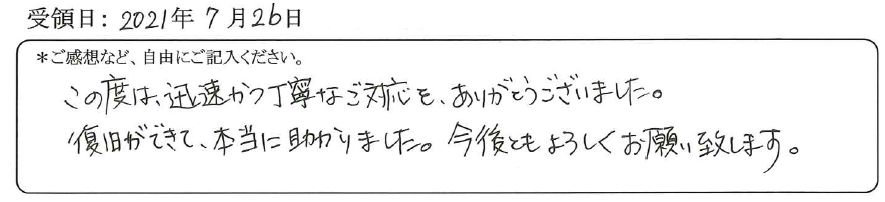 受領日: 2021年 7月26日
*ご感想など、自由にご記入ください。
この度は、迅速かつ丁寧なご対応を、ありがとうございました。
復旧ができて、本当に助かりました。今後ともよろしくお願い致します。